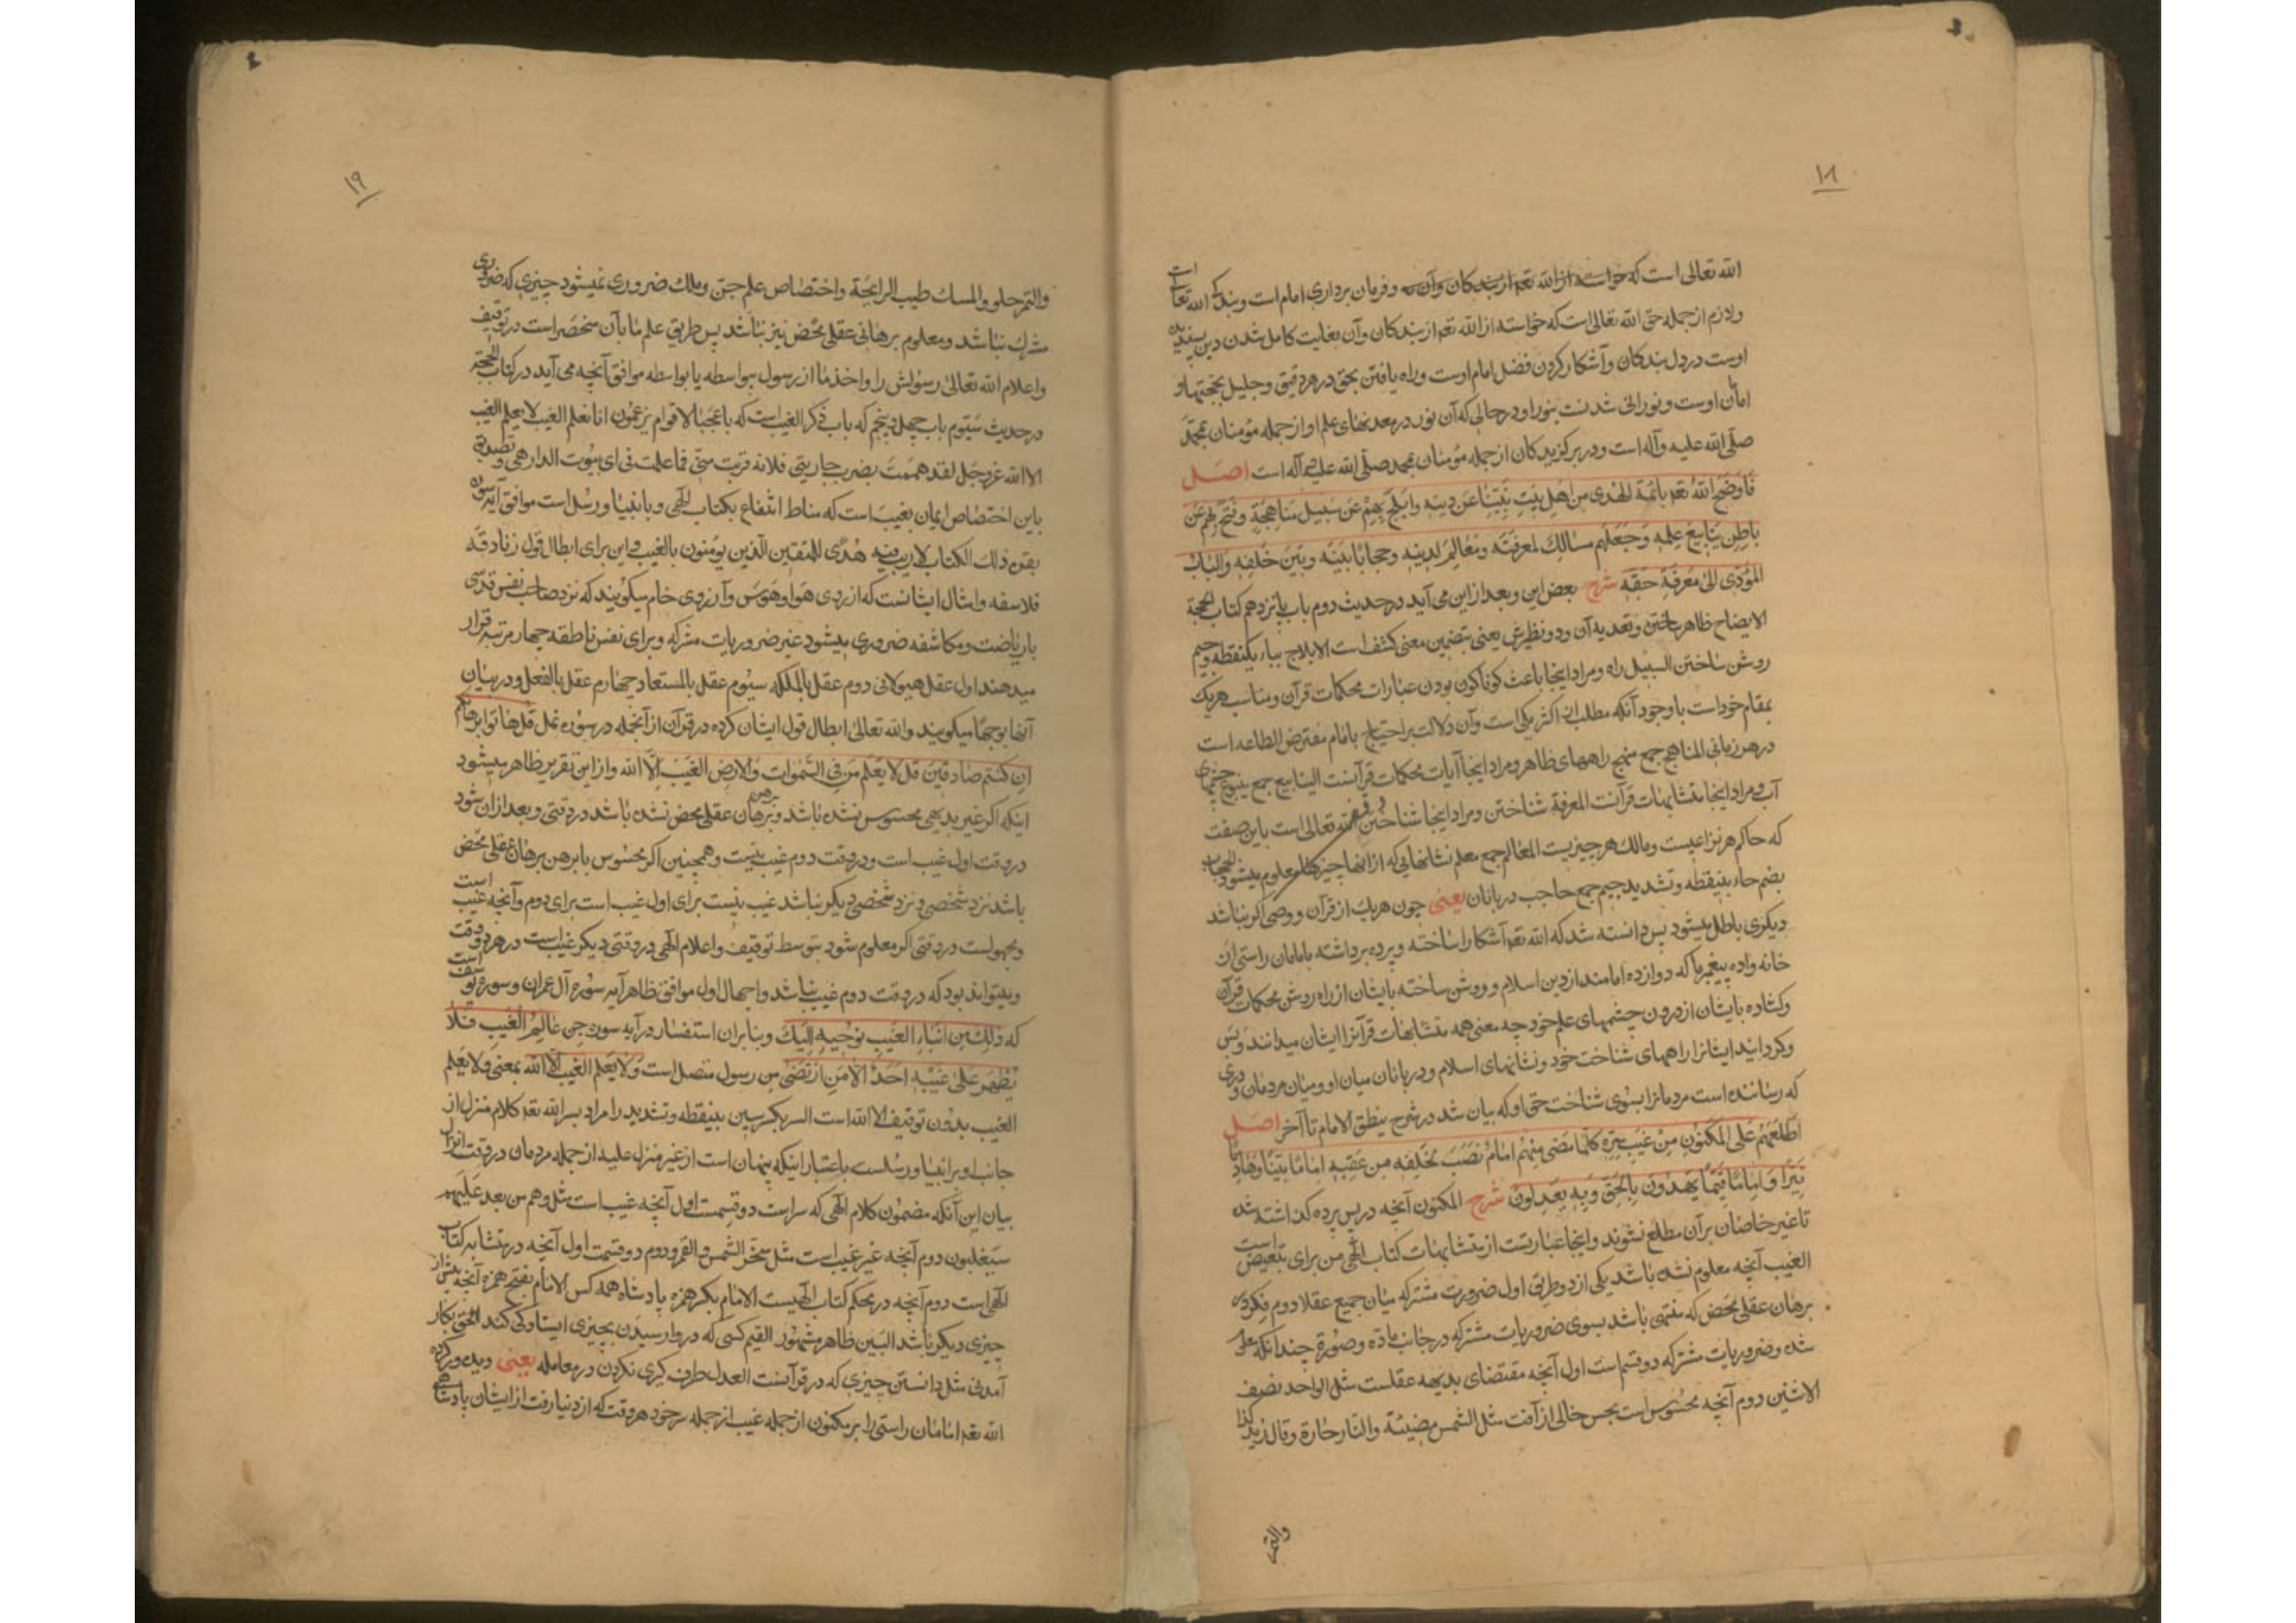 ١٨
الله تعالی است که خواسته از الله تعه از بندکان وآن به وفرمان برداری امام است وبندکی الله تعا است
ولازم از جمله حق الله تعالی است که خواسته از الله تعه از بندکان وآن بغایت کامل شدن دین پسندیده
اوست در دل بندکان وآشکار کردن فضل امام اوست وراه یافتن بحق در هر دقیق وجلیل بحجتها و
امامان اوست ونورانی شدنست بنور او در حالی که آن نور در معدنهای علم او از جمله مؤمنان بمحمد
صلی الله علیه وآله است ودر برکزیدکان از جمله مؤمنان بمحمد صلی الله علیه وآله است اصل
فَاَوضَحَ اللهُ تعه بائمّة الهُدی من اهل بَیتِ نَبِیِّنا عَن دینِهِ وابلَجَ بِهِم عَن سَبیلِ مَناهِجِهِ وفَتَحَ بِهِم عَن
باطِنِ یَنابیعِ عِلمِهِ وَجَعَلَهُم مسالِكَ لمعرفتِهِ ومَعالِمَ لدینِهِ وحجابًا بینَهُ وبَینَ خَلقِهِ والبابَ
المُؤَدّی الی مَعرِفَةِ حَقِّهِ شرح بعض این وبعد از این می آید در حدیث دوم باب پانزدهم کتاب الحجة
الایضاح ظاهر ساختن وتعدیه آن ودو نظیرش بعن بتضمین معنی کشف است الابلاج بباء یکنقطه وجیم
روشن ساختن السبیل راه ومراد اینجا باعث کوناکون بودن عبارات محکمات قرآن ومناسب هر یك
بمقام خود است با وجود آنکه مطلب از اکثر یکی است وآن دلالت بر احتیاج بامام مفترض الطاعه است
در هر زمانی المناهج جمع منهج راههای ظاهر ومراد اینجا آیات محکمات قرآنست الینابیع جمع ینبوع چشمهای
آب ومراد اینجا متشابهات قرآنست المعرفة شناختن ومراد اینجا شناختن الله تعالی است باین صفت
که حاکم هر نزاعیست ومالك هر چیزیست المعالم جمع معلم نشانهایی که از آنها چیزها معلوم میشود الحجاب
بضم حاء بینقطه وتشدید جیم جمع حاجب دربانان یعنی چون هر یك از قرآن ووصی اکر نباشد
دیکری باطل میشود پس دانسته شد که الله تعه آشکارا ساخته وپرده برداشته بامامان راستی از
خانه واده پیغمبر ما که دوازده امامند از دین اسلام وروشن ساخته بایشان از راه روشن محکمات قرآن
وکشاده بایشان از درون چشمهای علم خود چه معنی همه متشابهات قرآنرا ایشان میدانند وبس
وکردانید ایشانرا راههای شناخت خود ونشانهای اسلام ودربانان میان او ومیان مردمان ودری
که رساننده است مردمانرا بسوی شناخت حق او که بیان شد در شرح ینطق الامام تا آخر اصل
اَطلَعَهُم علی المکنونِ مِن غَیبِ سِرّهِ کلّما مَضی مِنهُم امامٌ نَصَبَ لخلقِهِ مِن عَقِبِهِ امامًا بیّنًا وهادیًا
نَیِّرًا وَامامًا قَیِّمًا یَهدُونَ بِالحَقّ وَبِهِ یَعدِلُون شرح المکنون آنچه در پس پرده کذاشته شده
تا غیر خاصان بر آن مطلع نشوند واینجا عبارتست از متشابهات کتاب الهی من برای تبعیض است
الغیب آنچه معلوم نشده باشد یکی از دو طریق اول ضرورت مشترکه میان جمیع عقلا دوم فکر در
برهان عقلی محض که منتهی باشد بسوی ضروریات مشترکه در جانب ماده وصورة چندانکه علم
شده وضروریات مشترکه دو قسم است اول آنچه مقتضای بدیهه عقلست مثل الواحد نصف
الاثنین دوم آنچه محسوس است بحس خالی از آفت مثل الشمس مضیئة والنار حارة وقال زید کذا
والتمر
١٩
والتمر حلو والمسك طیب الرایحة واختصاص علم جن وملك ضروری نمیشود چیزی که ضروری
مشترك نباشد ومعلوم برهانی عقلی محض نیز نباشد پس طریق علم ما بآن منحصر است در توقیف
واعلام الله تعالی رسولش را واخذ ما از رسول بیواسطه یا بواسطه موافق آنچه می آید در کتاب الحجة
در حدیث سیوم باب چهل وپنجم که باب فی ذکر الغیب است که یا عجبا لاقوام یزعمون انا نعلم الغیب لا یعلم الغیب
الا الله عز وجل لقد هممت بضرب جاریتی فلانة فهربت منّی فما علمت فی ای بیوت الدار هی وتصدیق
باین اختصاص ایمان بغیب است که مناط انتفاع بکتاب الهی وبانبیا ورسل است موافق آیه سوره
بقره ذلك الکتاب لا ریب فیه هُدًی للمتقین الّذین یؤمنون بالغیب واین برای ابطال قول زنادقه
فلاسفه وامثال ایشانست که از روی هوا وهوس وآرزوی خام میکویند که نزد صاحب نفس قدسی
بریاضت ومکاشفه ضروری میشود غیر ضروریات مشترکه وبرای نفس ناطقه چهار مرتبه قرار
میدهند اول عقل هیولانی دوم عقل بالملکه سیوم عقل بالمستفاد چهارم عقل بالفعل ودر بیان
آنها بوجها میکویند والله تعالی ابطال قول ایشان کرده در قرآن از آنجمله در سوره نمل قُل هَاتوا برهانکم
اِن کُنتُم صَادِقینَ قل لا یَعلَم مَن فِی السَّمٰوات والارض الغَیبَ اِلّا الله واز این تقریر ظاهر میشود
اینکه اکر غیر بدیهی محسوس نشده باشد وبرهان عقلی محض نشده باشد در وقتی وبعد از آن شود
در وقت اول غیب است ودر وقت دوم غیب نیست وهمچنین اکر محسوس یا مبرهن برهان عقلی محض
باشد نزد شخصی ونزد شخصی دیکر نباشد غیب نیست برای اول غیب است برای دوم وآنچه غیب است
ومجهولست در وقتی اکر معلوم شود بتوسط توقیف واعلام الهی در وقتی دیکر غیب است در هر دو وقت
ومیتواند بود که در وقت دوم غیب نباشد واحتمال اول موافق ظاهر آیه سوره آل عمران وسوره یوسف است
که ذلِكَ مِن اَنباءِ الغَیبِ نُوحیهِ اِلَیكَ وبنابر آن استفسار در آیه سوره جن عالِمُ الغَیبِ فَلا
یُظهِرُ عَلی غَیبِهِ اَحَدًا اِلّا مَنِ ارتَضی مِن رسول متصل است وَلا یَعلَم الغیبَ اِلّا الله بمعنی ولا یعلم
الغیب بدون توقیف الا الله است السر بکسر سین بینقطه وتشدید را مراد بسر الله تعه کلام منزل از
جانب او بر انبیا ورسلست باعتبار اینکه پنهان است از غیر منزل علیه از جمله مردمان در وقت انزال
بیان این آنکه مضمون کلام الهی که سر است دو قسمست اول آنچه غیب است مثل وهم من بعد غلبهم
سیغلبون دوم آنچه غیر غیب است مثل سخّر الشمس والقمر ودوم دو قسمت اول آنچه در متشابه کتاب
الهی است دوم آنچه در محکم کتاب الهیست الامام بکسر همزه پادشاه همه کس الامام بفتح همزه آنچه پیش از
چیزی دیکر باشد البَیِّن ظاهر مشهور القیّم کسی که در وارسیدن بچیزی ایستادکی کند الحق بکار
آمدنی مثل دانستن چیزی که در قرآنست العدل طرف کیری نکردن در معامله یعنی دیده ور کرده
الله تعه امامان راستی را بر مکنون از جمله غیب از جمله سر خود هر وقت که از دنیا رفت از ایشان پادشاهی